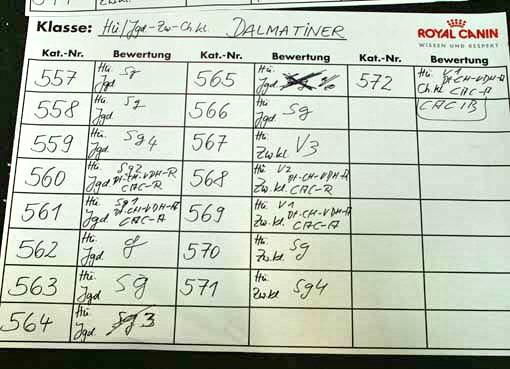 Klasse: Hü/Jgd-Zw-Ch.kl. DALMATINER
ROYAL CANIN
WISSEN UND RESPEKT
Kat.-Nr. Bewertung Kat.-Nr. Bewertung Kat.-Nr. Bewertung
557 Hü. Jgd. Sg 565 Hü. Jgd. 572 Hü. V1 Dt-CH-VDH-A Ch.kl. CAC-A
CACIB
558 Hü. Jgd. Sg 566 Hü. Jgd. Sg
559 Hü. Jgd. Sg4 567 Hü. Zw.kl. V3
560 Hü. Sg2 Jgd. Dt-CH-VDH-R CAC-R 568 Hü. V2 Zw.kl. Dt-CH-VDH-R CAC-R
561 Hü. Sg1 Jgd. Dt-CH-VDH-A CAC-A 569 Hü. V1 Zw.kl. Dt-CH-VDH-A CAC-A
562 Hü. Jgd. g 570 Hü. Zw.kl. Sg
563 Hü. Jgd. Sg 571 Hü. Zw.kl. Sg4
564 Hü. Jgd. Sg3